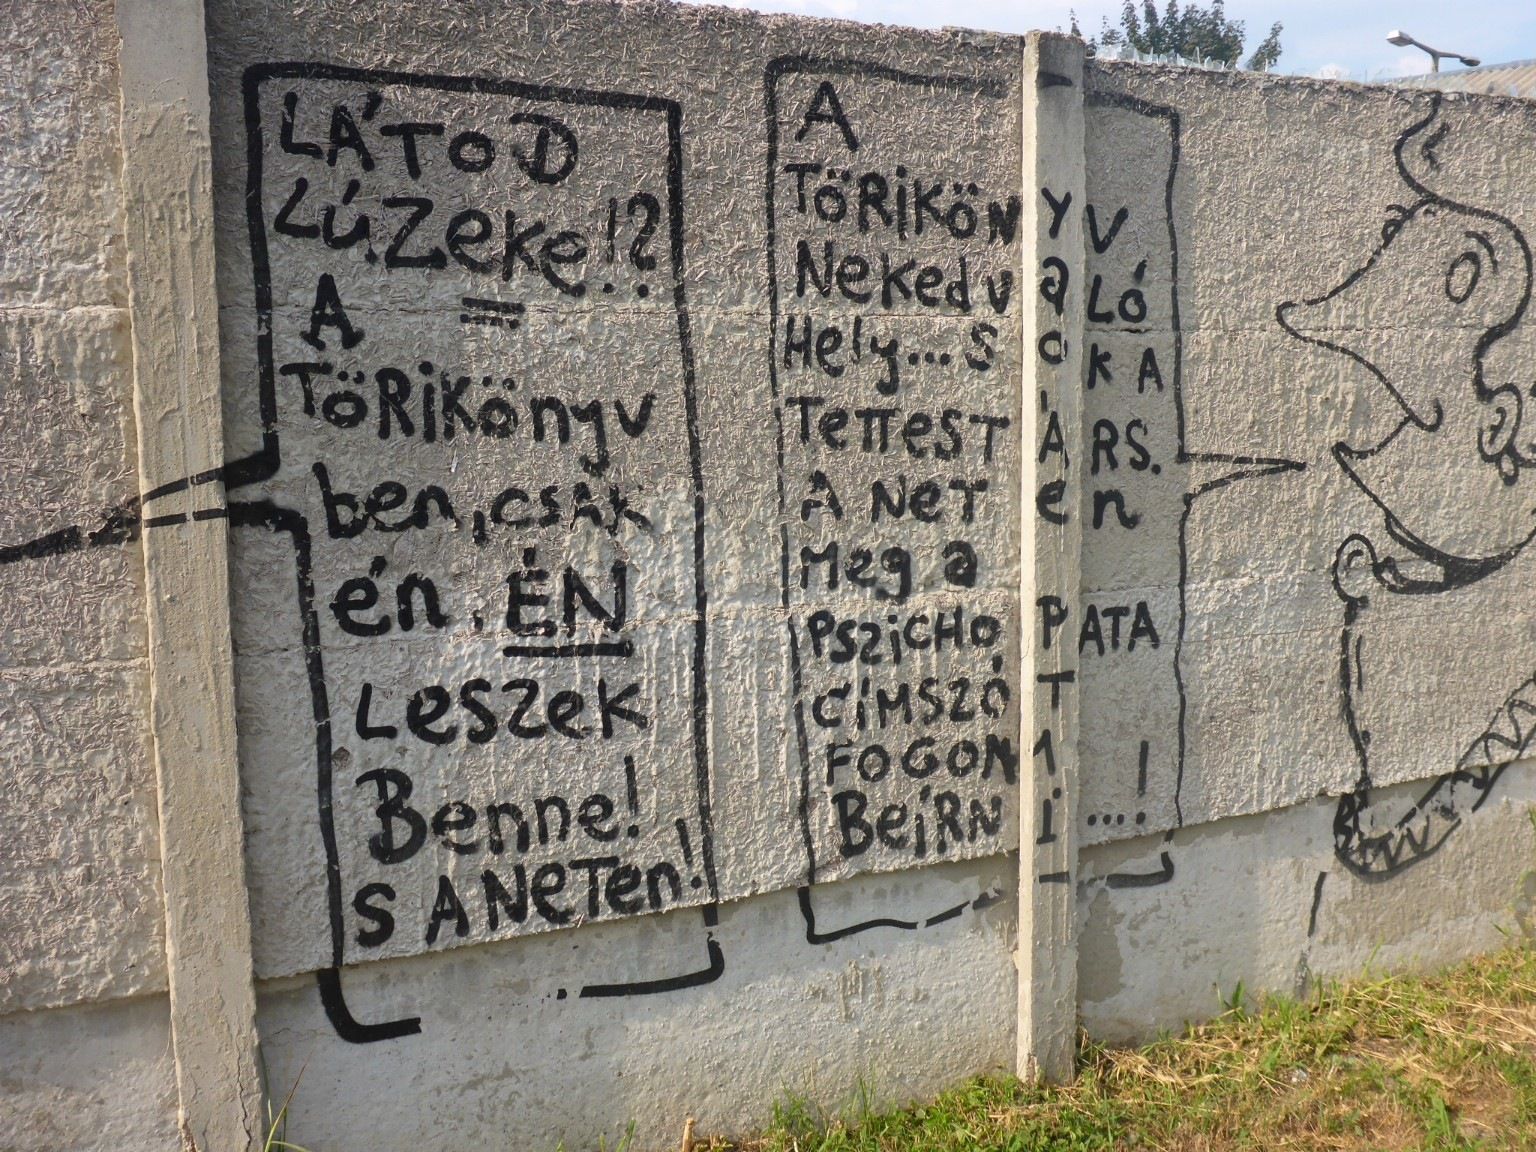 LÁTOD
LÚZEKE!?
A
TÖRiKönyv
ben, CSAK
én, ÉN
LeSZeK
Benne!
S A NeTen!
A
TÖRiKÖNYV
NeKed vaLó
Hely... SoKA
TeTTesTÁRS.
A NeTen
Meg a
PSZiCHOPATA
CÍMSZÓT
FOGOM
BeíRNi....!